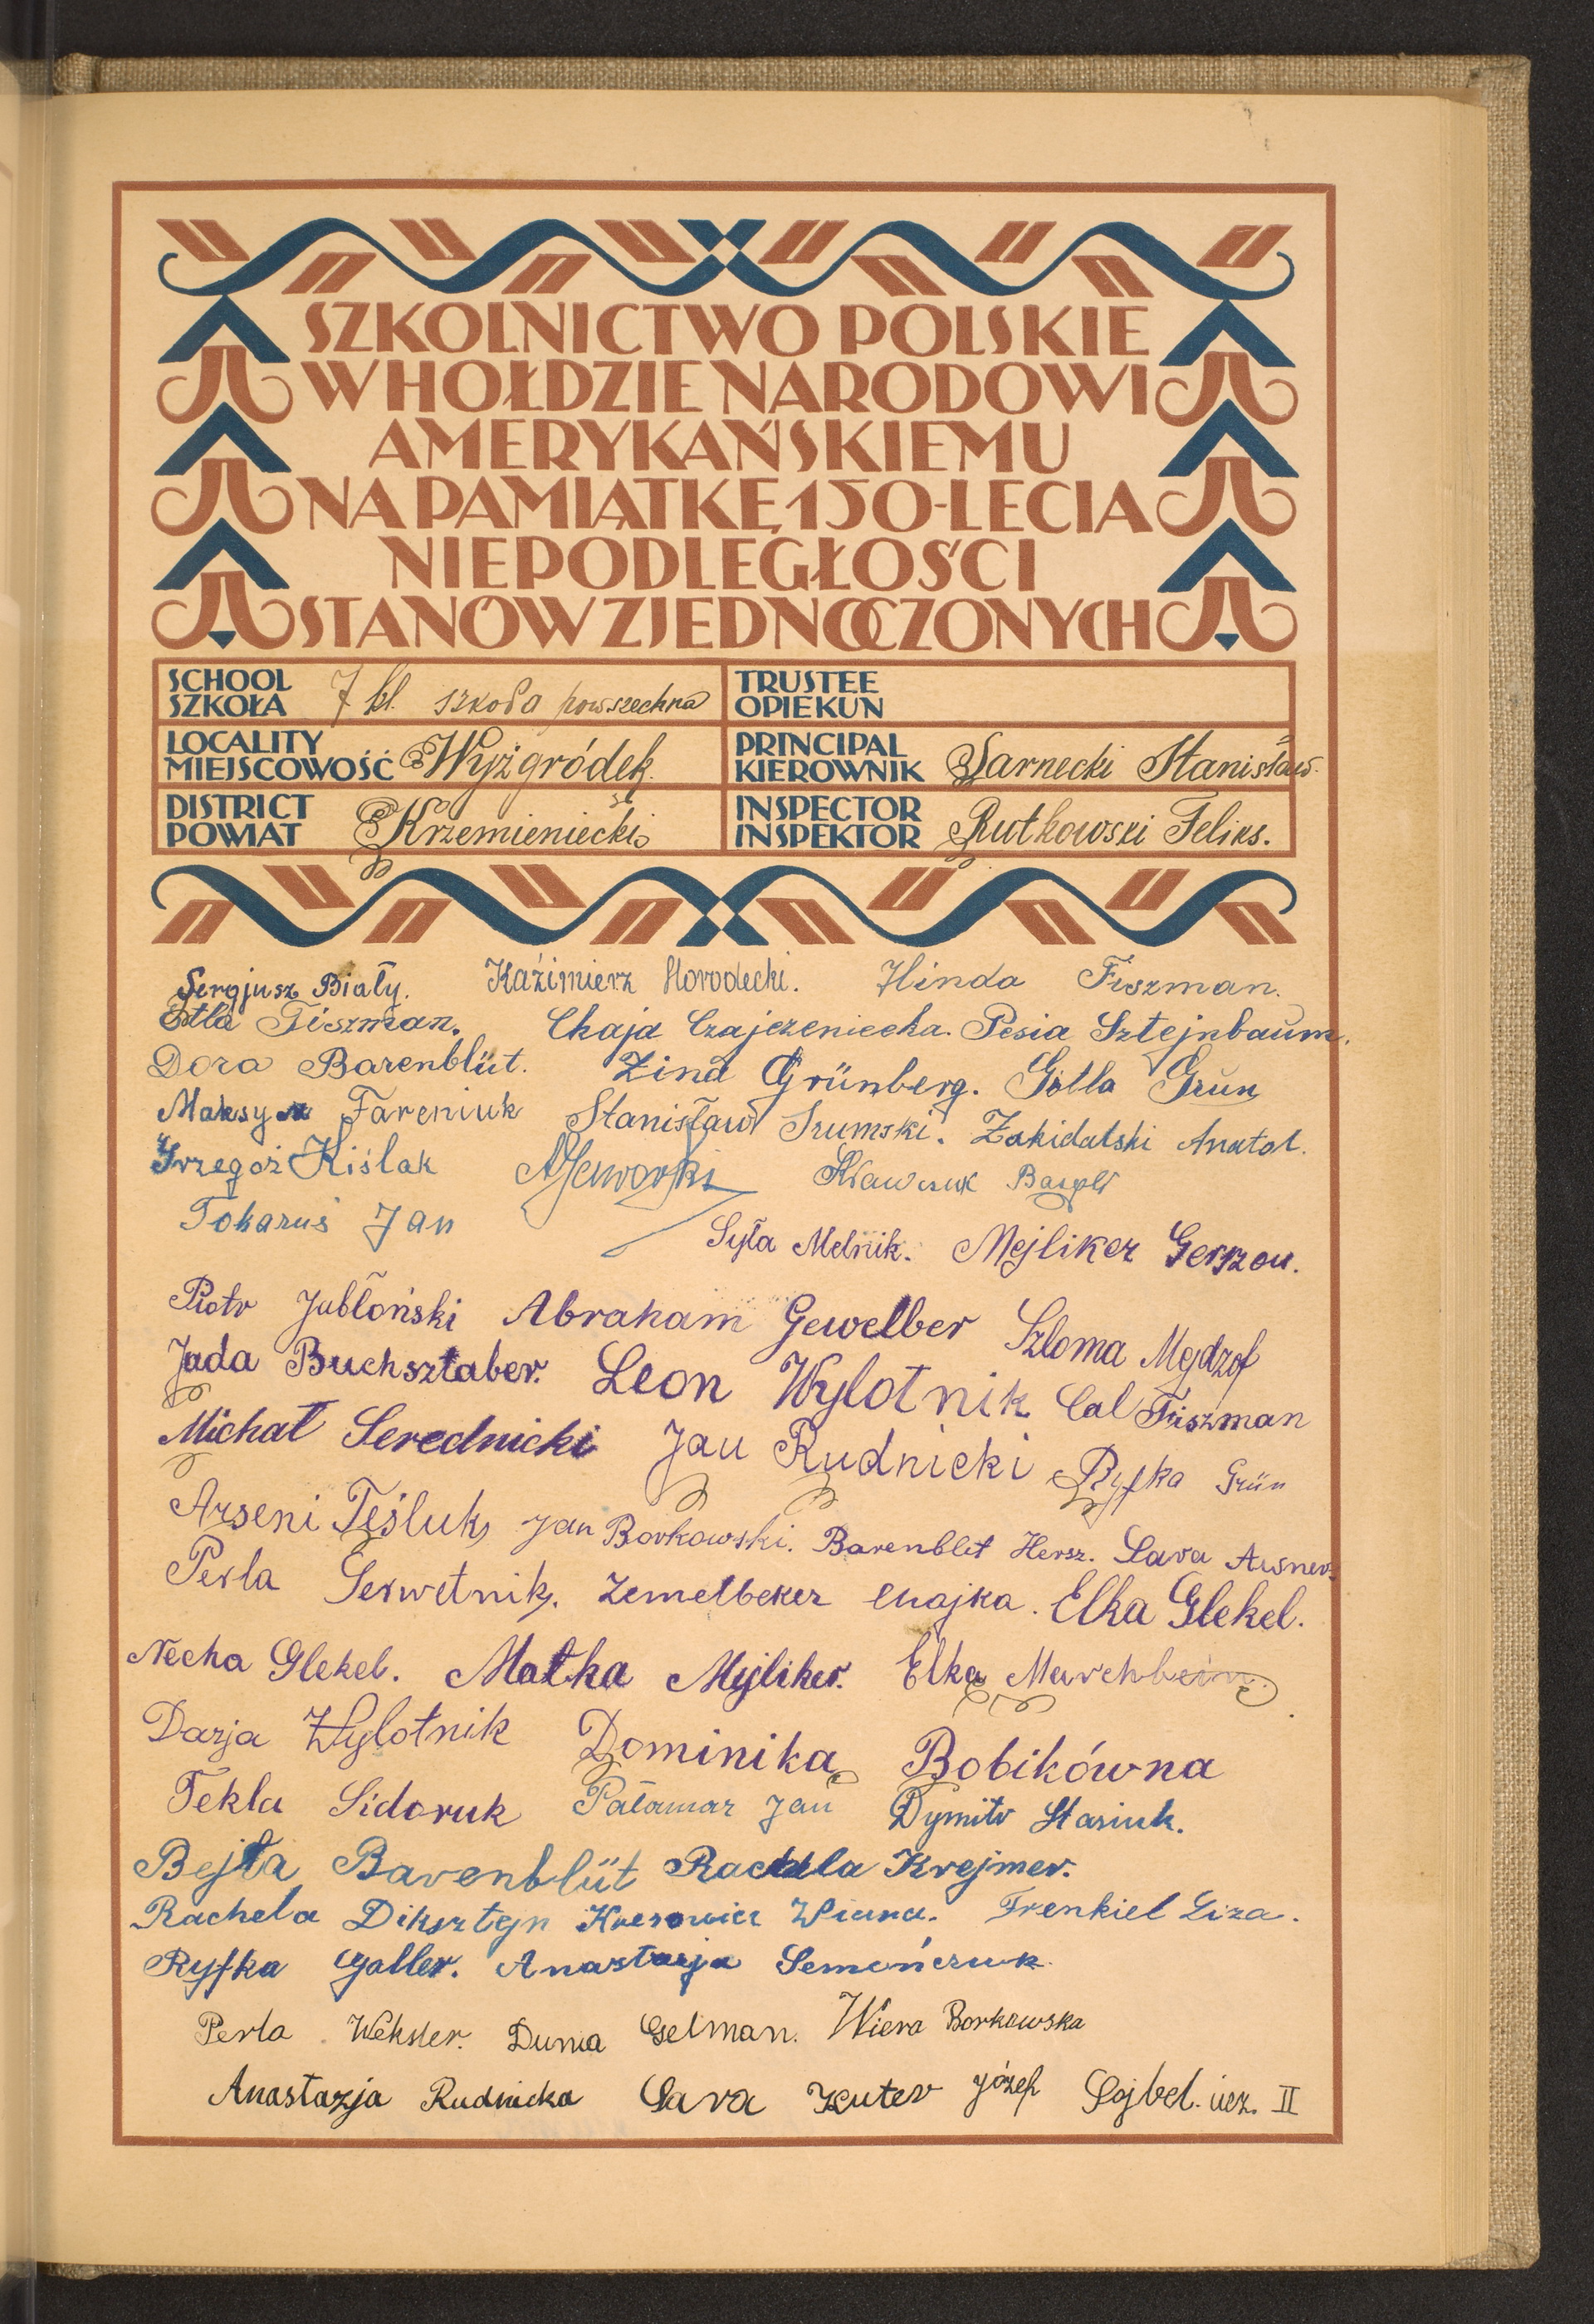 SZKOLNICTWO POLSKIE
W HOŁDZIE NARODOWI
AMERYKAŃSKIEMU
NA PAMIĄTKĘ 150-LECIA
NIEPODLEGŁOŚCI
STANÓW ZJEDNOCZONYCH
SCHOOL
SZKOŁA 7 kl. szkoła powszechna
TRUSTEE
OPIEKUN
LOCALITY
MIEJSCOWOŚĆ Wyżgródek
PRINCIPAL
KIEROWNIK Sarnecki Stanisław
DISTRICT
POWIAT Krzemieniecki
INSPECTOR
INSPEKTOR Rutkowski Feliks.
Sergjusz Biały. Kaźimierz Horodecki. Hinda Fiszman.
Etla Fiszman. Chaja Czajczeniecka. Pesia Sztejnbaum.
Dora Barenblüt. Zina Grünberg. Gitla Grün
Maksym Fareniuk Stanisław Szumski. Zakidalski Anatol.
Grzegoż Kiślak Krawczuk
Tokaruś Jan Syła Melnik. Mejliker Gerszon.
Piotr Jabłoński Abraham Gewelber Szloma
Jada Buchsztaber. Leon Wylotnik Cal Fiszman
Michał Serednicki Jan Rudnicki Ryfka Grün
Arseni Teśluk Jan Borkowski. Barenblit Hersz. Sara Ausner.
Perla Serwetnik. Zemelbeker Chajka. Elka Glekel.
Necha Glekel. Matka Mejliker. Elka Marchbein
Darja Wylotnik Dominika Bobikówna
Tekla Sidoruk Pałamar Jan Dymitr Stasiuk.
Bejla Barenblüt Rachla Krejmer.
Rachela Diksztejn Frenkiel Liza.
Ryfka Galler. Anastazja Semeńczuk
Perla Weksler. Dunia Gelman. Wiera Borkowska
Anastazja Rudnicka Sara Kuter Józef Sojbel. ucz. II